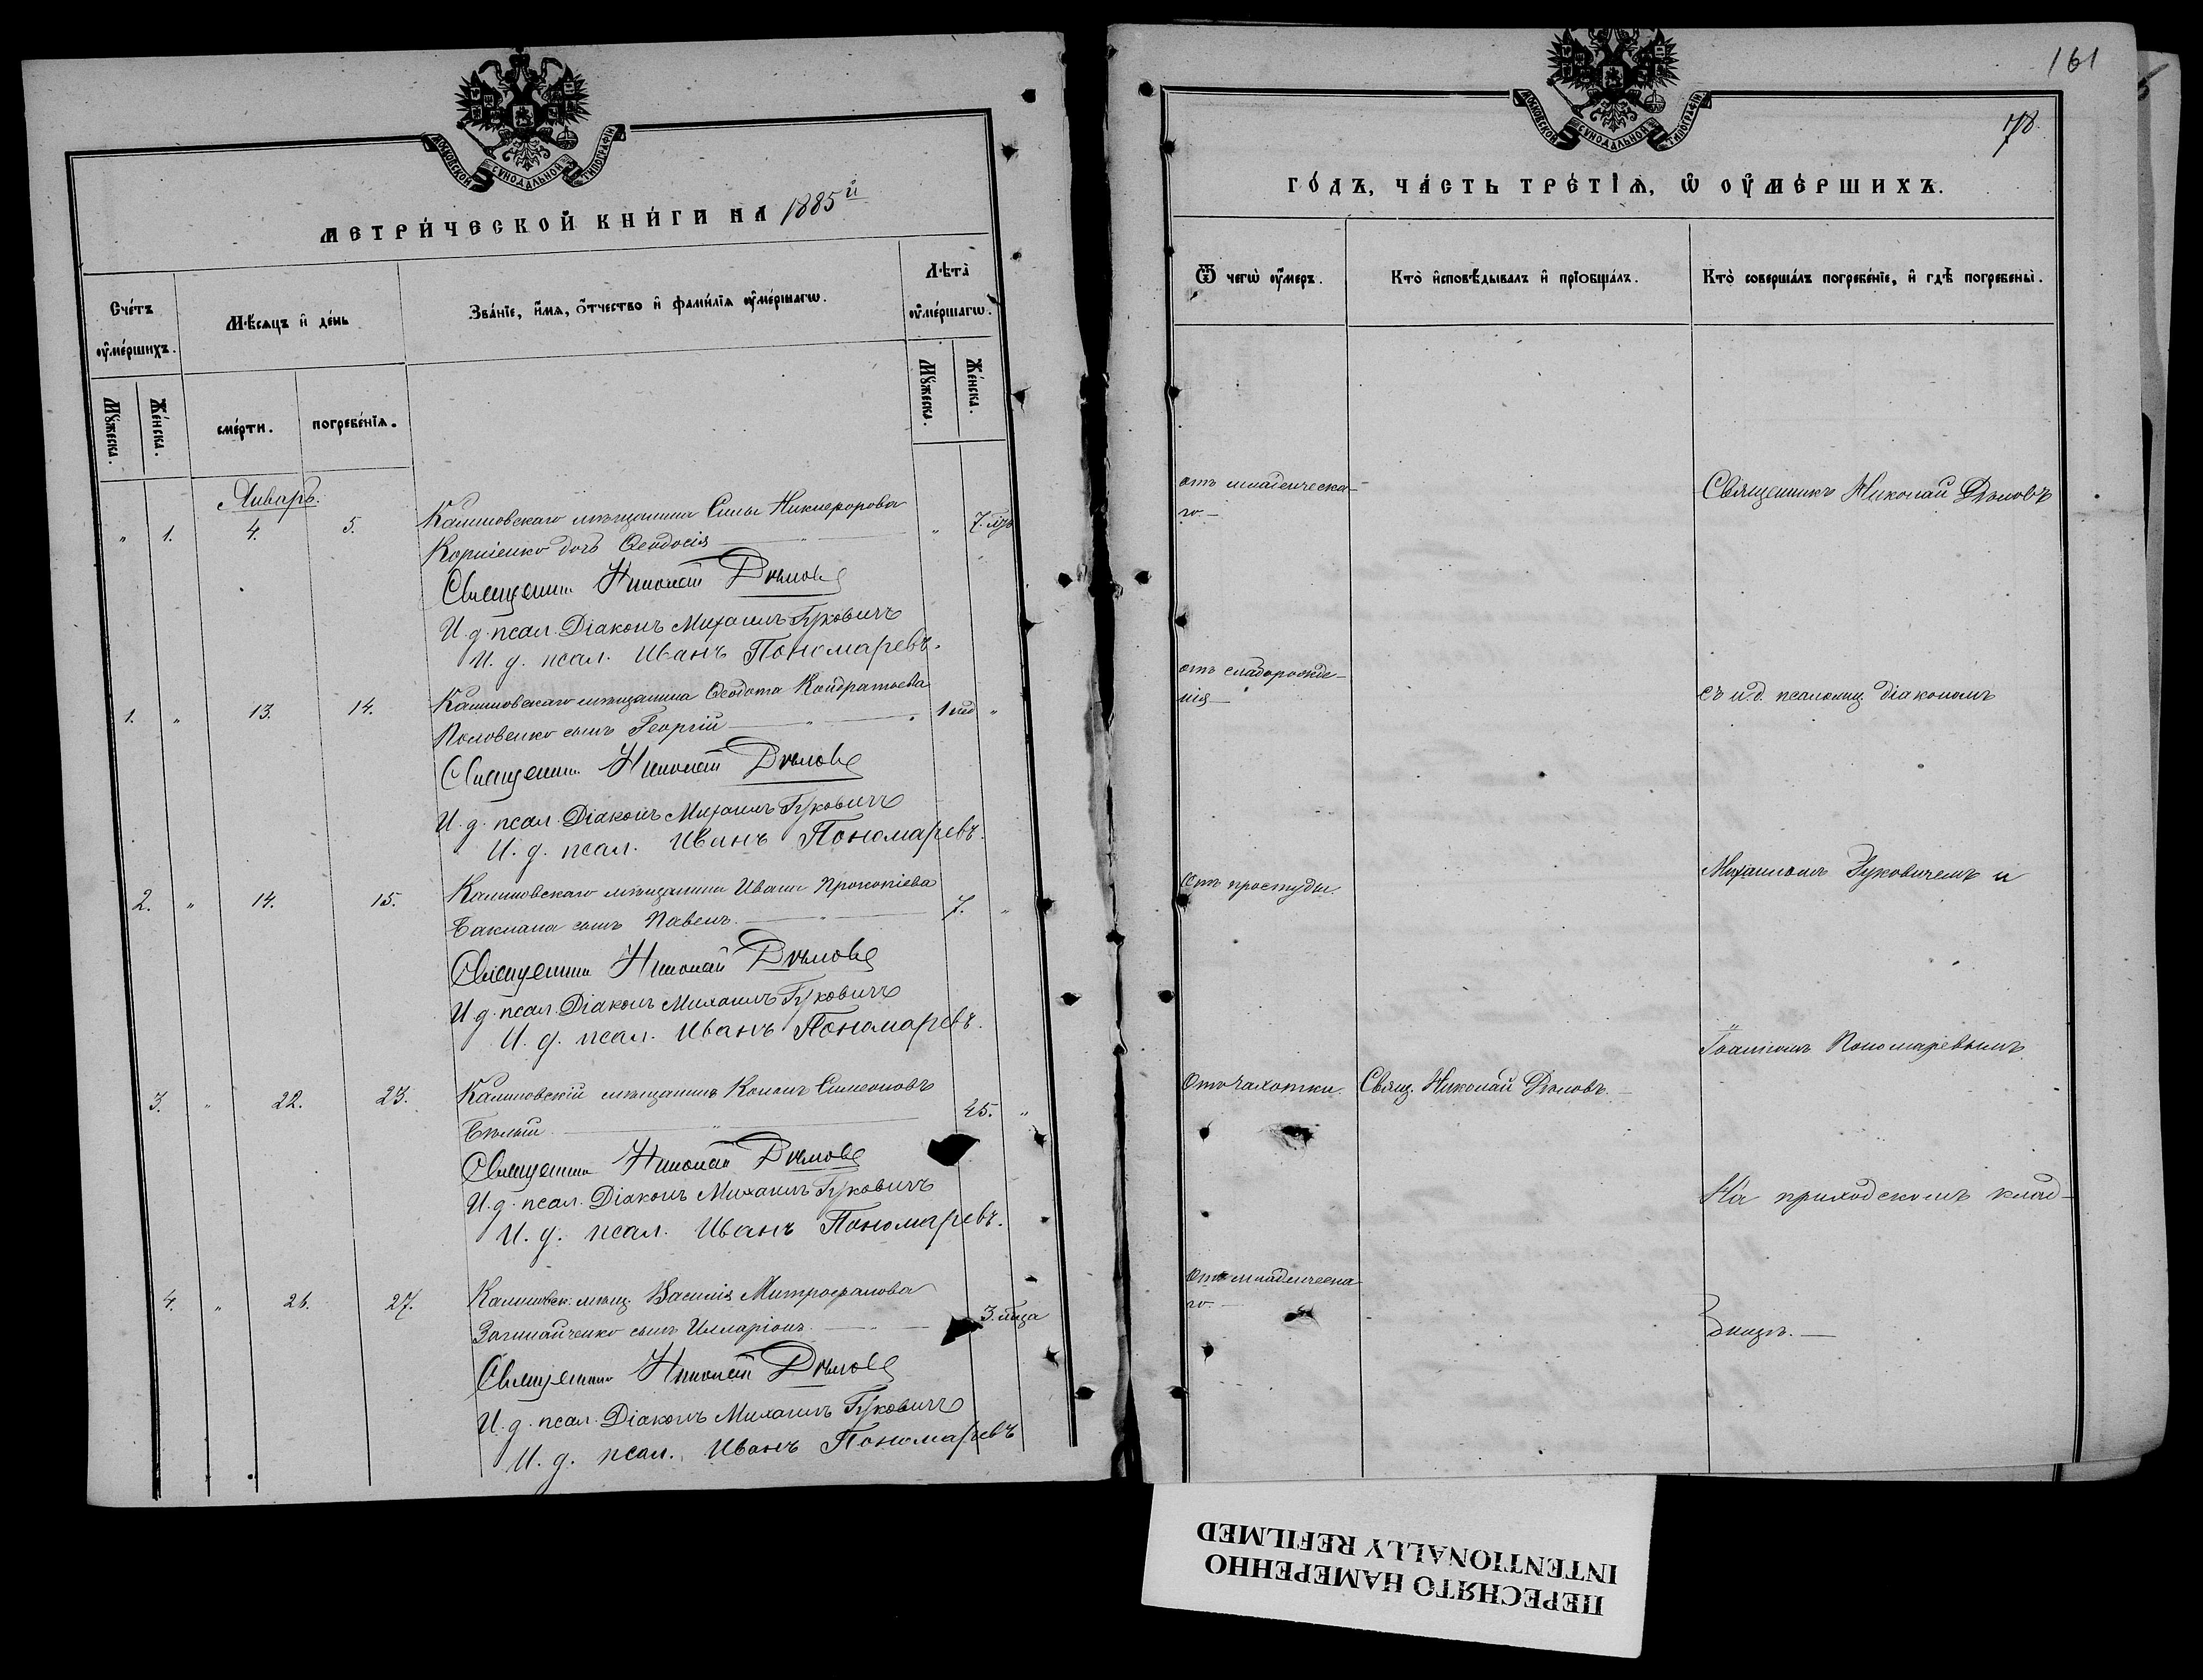 МОСКОВСКОЙ СУНОДАЛЬНОЙ ТИПОГРАФІИ
МЕТРИ́ЧЕСКОЙ КНИ́ГИ НА 1885й
Сче́тъ ᲂу҆ме́ршихъ.
Мѣ́сяцъ и҆ де́нь
Зва́нїе, и҆́мѧ, ѻ҆́тчество и҆ фами́лїѧ ᲂу҆ме́ршагѡ.
Лѣ́та ᲂу҆ме́ршагѡ.
Мꙋ́жеска.
Же́нска.
сме́рти.
погребе́нїѧ.
Мꙋ́жеска.
Же́нска.
Январь.
" 1. 4. 5. Калиновскаго мѣщанина Силы Никифорова " 7. мц
Корніенко дочь Ѳеодосія
Священникъ Николай Дѣловъ
И. д. псал. Діаконъ Михаилъ Гуковичъ
И. д. псал. Иванъ Пономаревъ.
1. " 13. 14. Калиновскаго мѣщанина Ѳеодота Кондратьева 1 нед "
Половенко сынъ Георгій
Священникъ Николай Дѣловъ
И. д. псал. Діаконъ Михаилъ Гуковичъ
И. д. псал. Иванъ Пономаревъ.
2. " 14. 15. Калиновскаго мѣщанина Ивана Прокопіева 7. "
Баклана сынъ Павелъ
Священникъ Николай Дѣловъ
И. д. псал. Діаконъ Михаилъ Гуковичъ
И. д. псал. Иванъ Пономаревъ.
3. " 22. 23. Калиновскій мѣщанинъ Симеоновъ "
Бѣлый
Священникъ Николай Дѣловъ
И. д. псал. Діаконъ Михаилъ Гуковичъ
И. д. псал. Иванъ Пономаревъ.
4. " 26. 27. Калиновск. мѣщ. Василія Митрофанова 3. мѣца
сынъ Иларіонъ
Священникъ Николай Дѣловъ
И. д. псал. Діаконъ Михаилъ Гуковичъ
И. д. псал. Иванъ Пономаревъ
161
78
МОСКОВСКОЙ СУНОДАЛЬНОЙ ТИПОГРАФІИ
ГО́ДЪ, ЧА́СТЬ ТРЕ́ТІѦ, Ѡ ОУ҆МЕ́РШИХЪ.
Ѿ чегѡ̀ ᲂу҆́меръ.
Кто̀ и҆сповѣ́дывалъ и҆ прїобща́лъ.
Кто̀ соверша́лъ погребе́нїе, и҆ гдѣ̀ погребены̀.
отъ младенческа-
го.
Священникъ Николай Дѣловъ
отъ слаборожде-
нія
съ и. д. псаломщ. діакономъ
Отъ простуды.
Михаиломъ Гуковичемъ и
Іоанномъ Пономаревымъ
Отъ чахотки. Свящ. Николай Дѣловъ.
На приходскомъ клад-
Отъ младенческа
го.
бищѣ.
ПЕРЕСНЯТО НАМЕРЕННО
INTENTIONALLY REFILMED